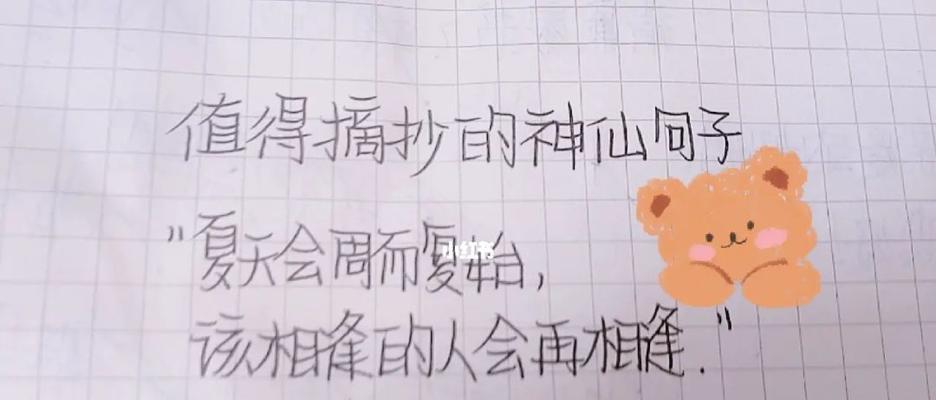 值得摘抄的神仙句子
"夏天会周而复始,
小红书
该相逢的人会再相逢."